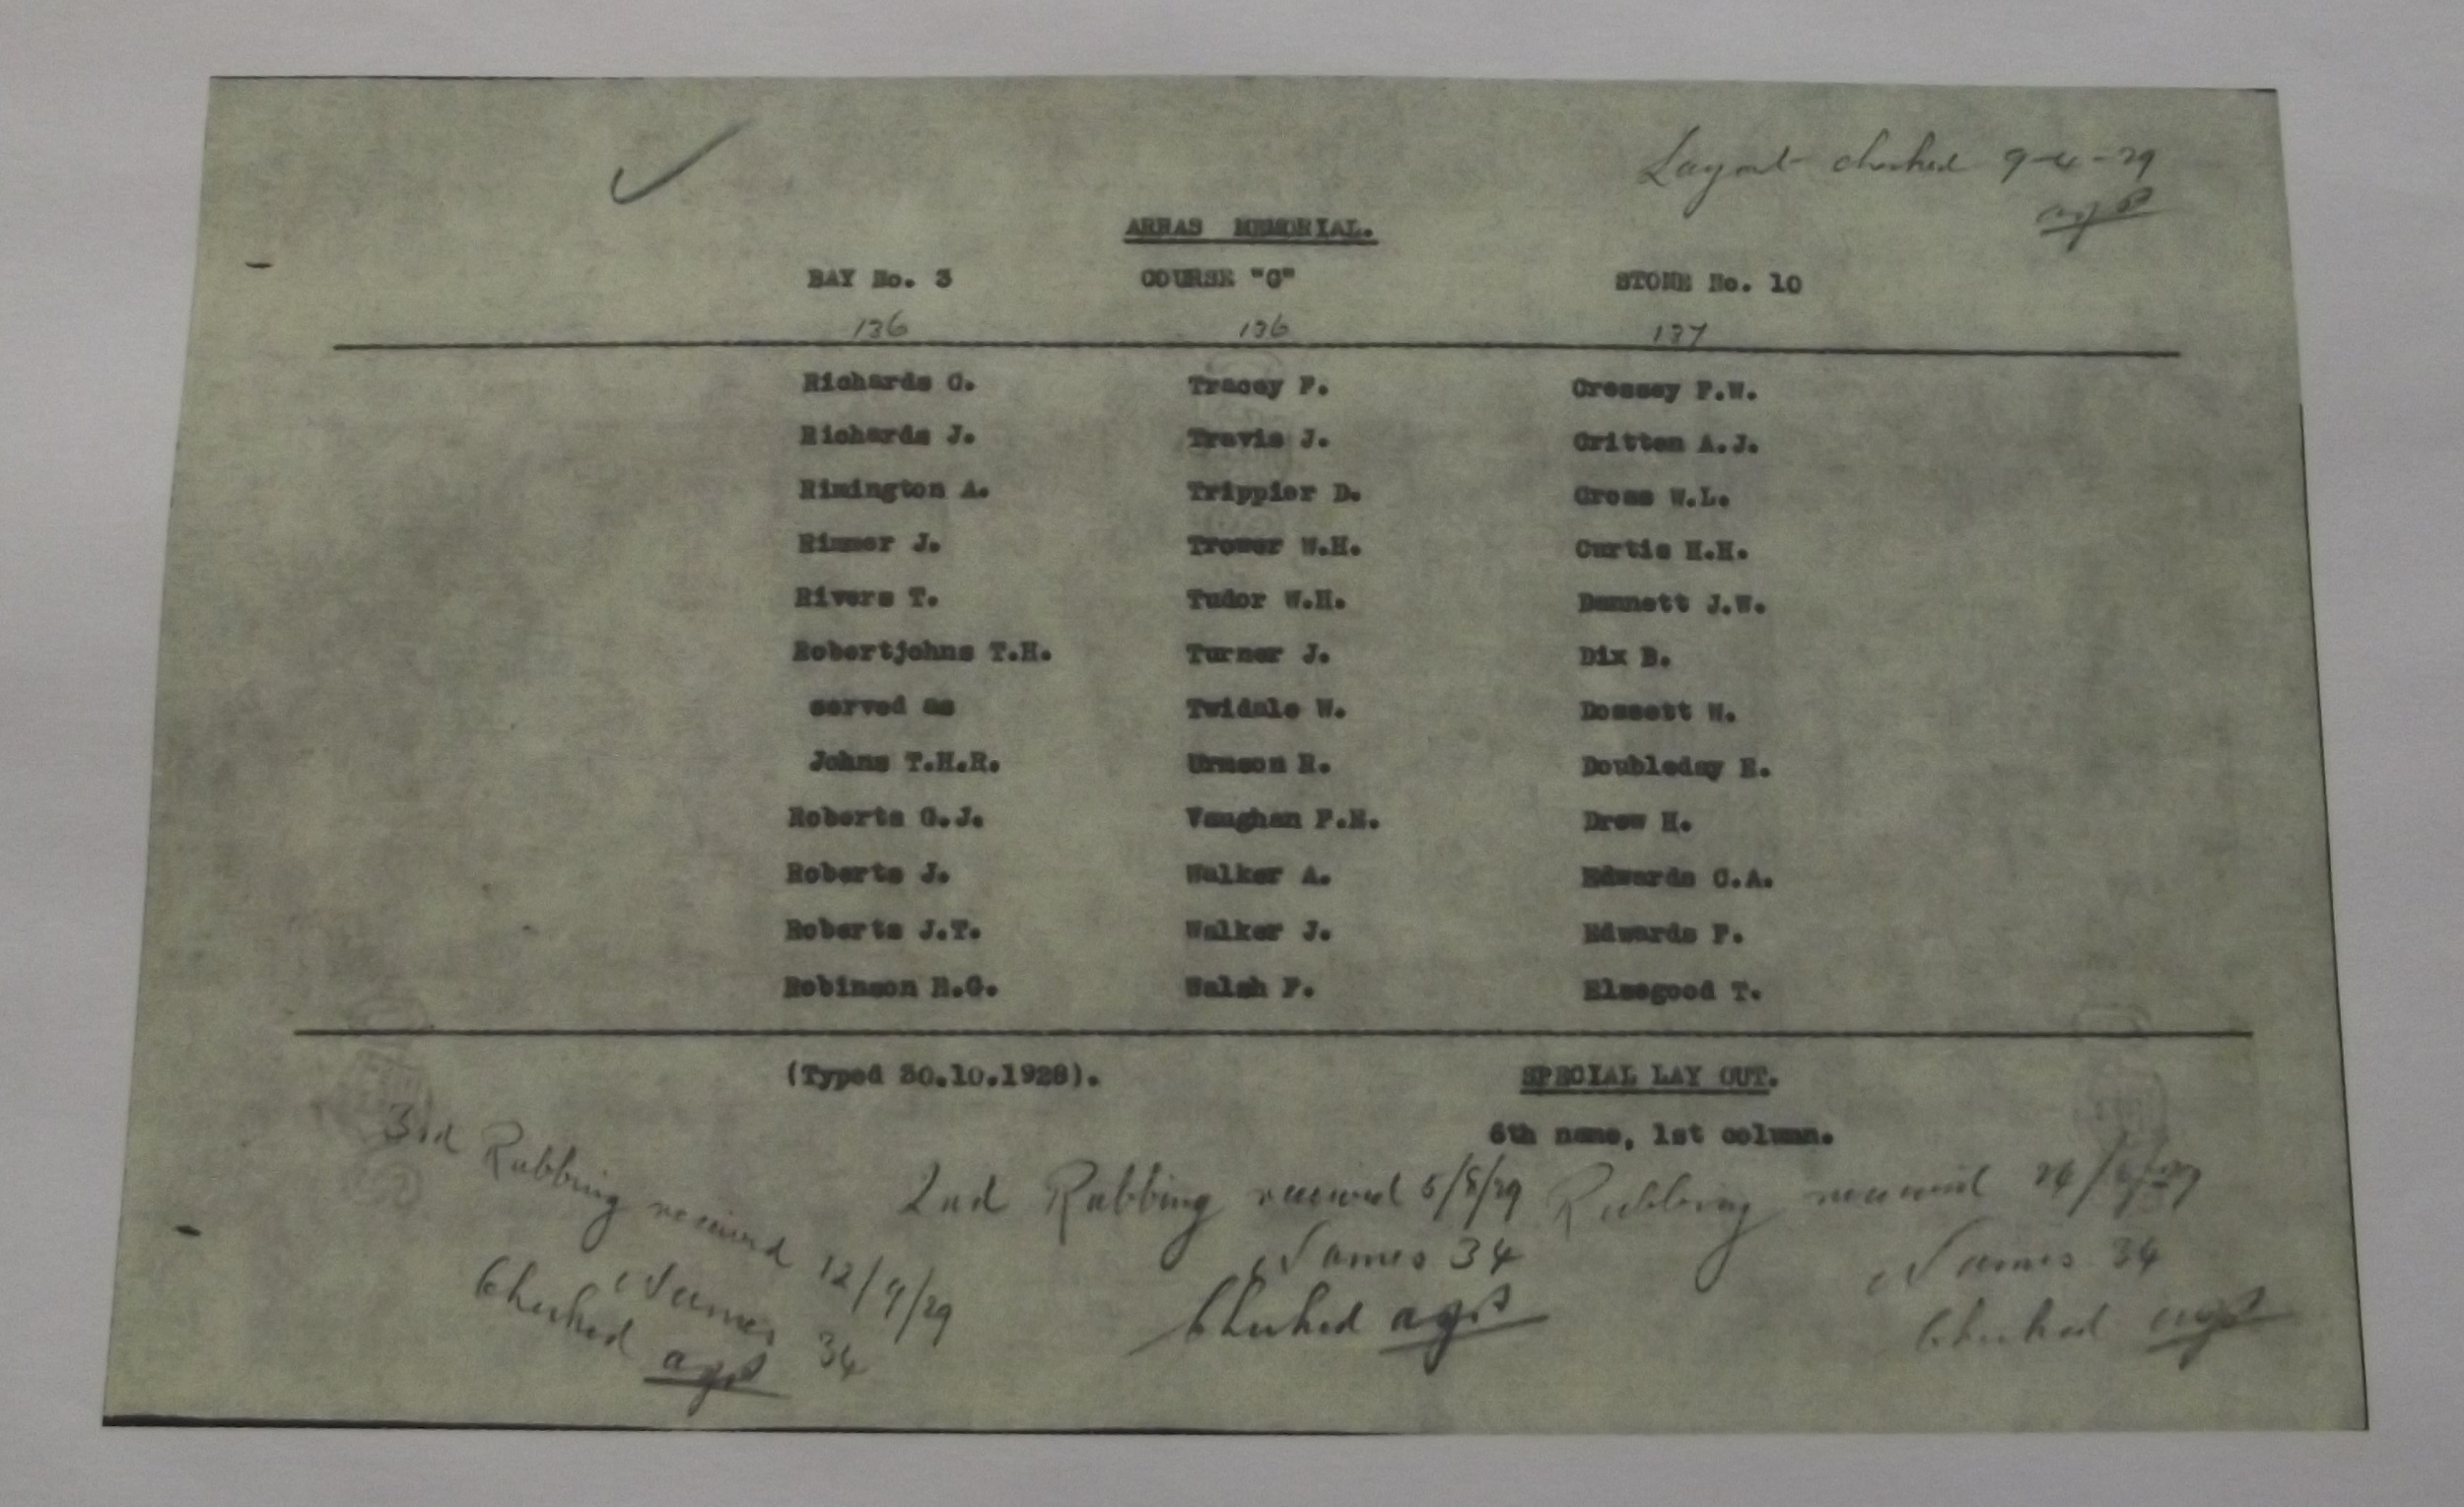 Layout checked 9-4-29
ARRAS MEMORIAL.
BAY No. 3 COURSE "G" STONE No. 10
136 136 137
Richards C. Tracey F. Cressey F.W.
Richards J. Travis J. Critten A.J.
Rimington A. Trippier D. Cross W.L.
Rimmer J. Trower W.H. Curtis H.H.
Rivers T. Tudor W.H. Dannett J.W.
Robertjohns T.H. Turner J. Dix B.
served as Twidale W. Dossett W.
Johns T.H.R. Urmson R. Doubleday E.
Roberts G.J. Vaughan F.H. Drew H.
Roberts J. Walker A. Edwards C.A.
Roberts J.T. Walker J. Edwards F.
Robinson H.G. Walsh F. Elsegood T.
(Typed 30.10.1928). SPECIAL LAY OUT.
6th name, 1st column.
3rd Rubbing received 12/9/29
Names 34
Checked
2nd Rubbing received 5/8/29
Names 34
Checked
Rubbing received
Names 34
Checked